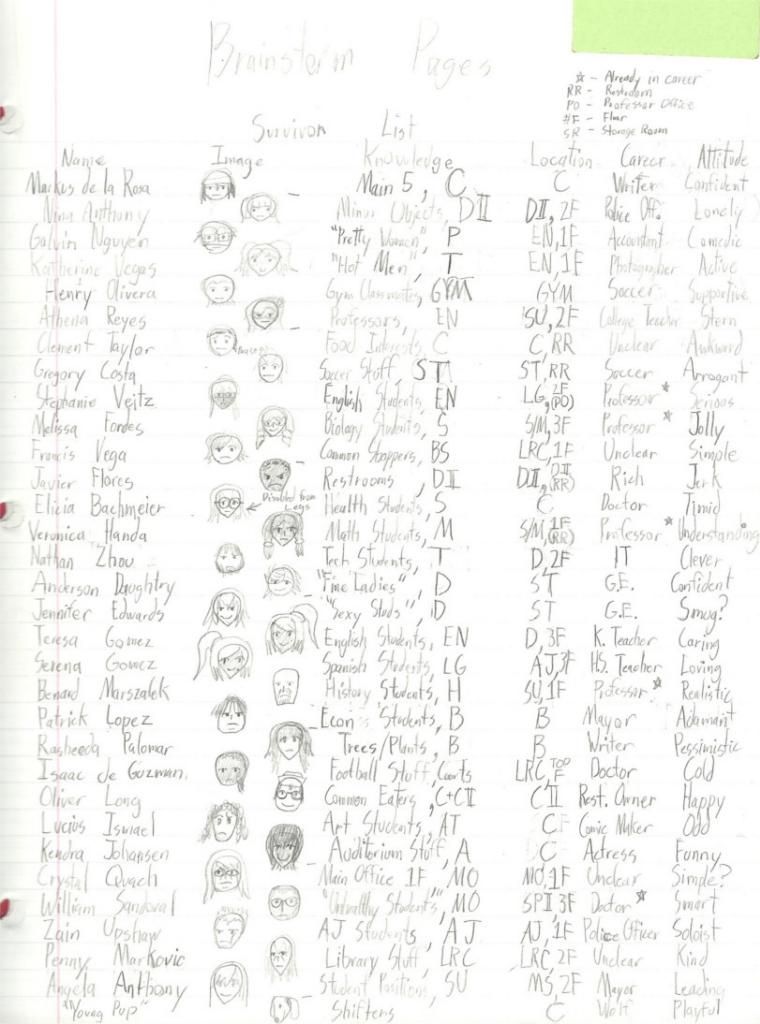 Brainstorm Pages
☆ - Already in career
RR - Restroom
PO - Professor Office
#F - Floor
SR - Storage Room
Survivor List
Name Image Knowledge Location Career Attitude
Markus de la Rosa Main 5, C C Writer Confident
Nina Anthony Minor Objects, DII DII, 2F Police Off. Lonely
Galvin Nguyen "Pretty Women", P EN, 1F Accountant Comedic
Katherine Vegas "Hot Men", T EN, 1F Photographer Active
Henry Olivera Gym Classmates, GYM GYM Soccer Supportive
Athena Reyes Professors, EN SU, 2F College Teacher Stern
Clement Taylor Food Interests, C C, RR Unclear Awkward
Gregory Costa Soccer Stuff, ST ST, RR Soccer Arrogant
Stephanie Veitz English Students, EN LG, 2F (PO) Professor ☆ Serious
Melissa Fordes Biology Students, S S/M, 3F Professor ☆ Jolly
Francis Vega Common Shoppers, BS LRC, 1F Unclear Simple
Javier Flores Restrooms, DII DII, (RR) Rich Jerk
Elicia Bachmeier Disabled from Legs Health Students, S C Doctor Timid
Veronica Handa Math Students, M S/M, 1F (RR) Professor ☆ Understanding
Nathan Zhou Tech Students, T D, 2F IT Clever
Anderson Daughtry "Fine Ladies", D ST G.E. Confident
Jennifer Edwards "Sexy Studs", D ST G.E. Smug?
Teresa Gomez English Students, EN D, 3F K. Teacher Caring
Serena Gomez Spanish Students, LG AJ, 3F HS. Teacher Loving
Benard Marszalek History Students, H SU, 1F Professor ☆ Realistic
Patrick Lopez Econ Students, B B Mayor Adamant
Rasheeda Palomar Trees/Plants, B B Writer Pessimistic
Isaac de Guzman Football Stuff, Courts LRC, TOP F Doctor Cold
Oliver Long Common Eaters, C+CII CII Rest. Owner Happy
Lucius Ismael Art Students, AT C Comic Maker Odd
Kendra Johansen Auditorium Stuff, A C Actress Funny
Crystal Quach Main Office 1F MO MO, 1F Unclear Simple?
William Sandoval "Unhealthy Students", MO SPI, 3F Doctor ☆ Smart
Zain Upshaw AJ Students, AJ AJ, 1F Police Officer Soloist
Penny Markovic Library Stuff, LRC LRC, 2F Unclear Kind
Angela Anthony Student Positions, SU MS, 2F Mayor Leading
"Young Pup" Shifters C Wolf Playful